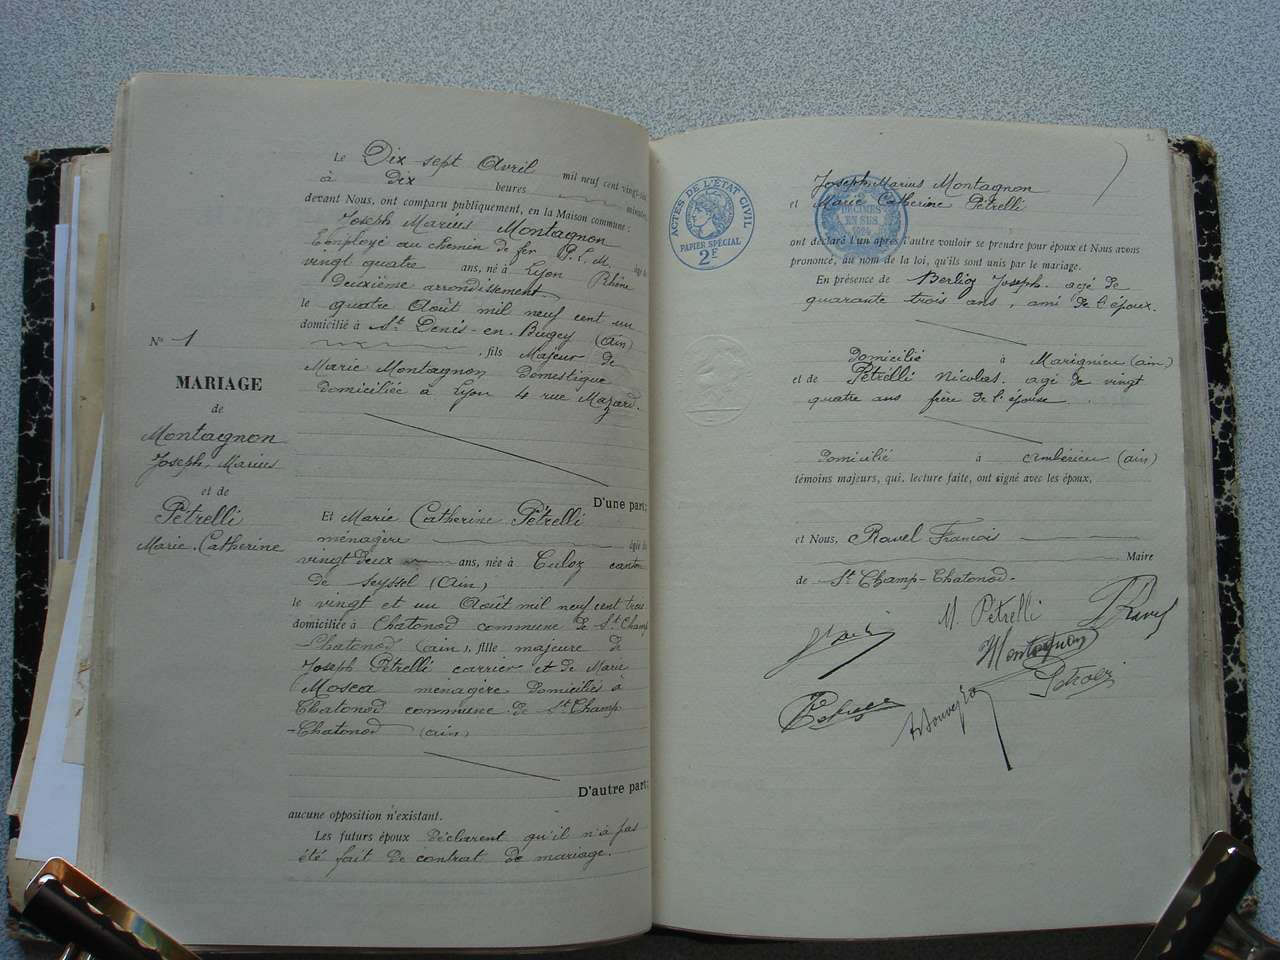 Le Dix sept Avril mil neuf cent vingt-six
à dix heures minutes
devant Nous, ont comparu publiquement, en la Maison commune :
Joseph Marius Montagnon
Employé au chemin de fer P. L. M. âgé de
vingt quatre ans, né à Lyon Rhône
deuxième arrondissement
le quatre Août mil neuf cent un
domicilié à St Denis-en-Bugey (Ain)
, fils Majeur de
Marie Montagnon domestique
domiciliée à Lyon 4 rue Mazard.
N° 1
MARIAGE
de
Montagnon
Joseph. Marius
et de
Pétrelli
Marie. Catherine
D'une part;
Et Marie Catherine Pétrelli
ménagère âgée de
vingt deux ans, née à Culoz canton
de Seyssel (Ain)
le vingt et un Août mil neuf cent trois
domiciliée à Chatonod commune de St Champ
Chatonod (ain), fille majeure de
Joseph Pétrelli carrier et de Marie
Mosca ménagère domiciliés à
Chatonod commune de St Champ
-Chatonod (ain)
D'autre part;
aucune opposition n'existant.
Les futurs époux déclarent qu'il n'a pas
été fait de contrat de mariage.
2
ACTES DE L'ÉTAT CIVIL
PAPIER SPÉCIAL
2F
DÉCIMES
EN SUS
1924
Joseph. Marius Montagnon
et Marie Catherine Pétrelli
ont déclaré l'un après l'autre vouloir se prendre pour époux et Nous avons
prononcé, au nom de la loi, qu'ils sont unis par le mariage.
En présence de Berlioz Joseph. agé de
quarante trois ans. ami de l'époux.
Domicilié à Marignieu (ain)
et de Pétrelli Nicolas. agé de vingt
quatre ans frère de l'épouse
Domicilié à Ambérieu (ain)
témoins majeurs, qui, lecture faite, ont signé avec les époux,
et Nous, Ravel Francois
Maire
de St Champ-Chatonod.
M. Pétrelli
Ravel
Montagnon